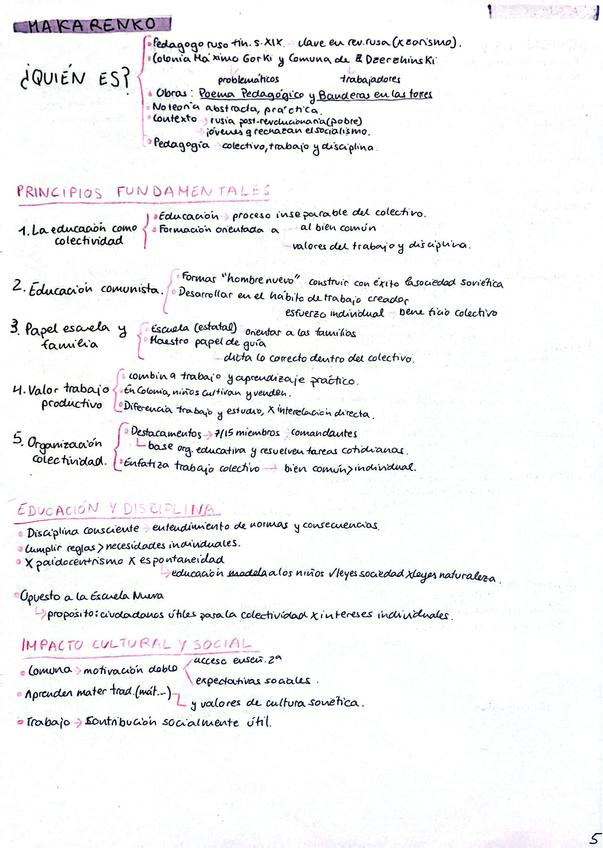 MAKARENKO
¿QUIÉN ES?
Pedagogo ruso fin. s.XIX → clave en rev.rusa (x zarismo).
Colonia Máximo Gorki y Comuna de Dzerzhinski
problemáticos trabajadores
Obras: Poema Pedagógico y Banderas en las torres
No teoría abstracta, práctica.
Contexto → rusia post-revolucionaria (pobre)
→ jóvenes q rechazan el socialismo.
Pedagogía → colectivo, trabajo y disciplina.
PRINCIPIOS FUNDAMENTALES
1. La educación como colectividad
Educación → proceso inseparable del colectivo.
Formación orientada a al bien común
valores del trabajo y disciplina.
2. Educación comunista.
Formar "hombre nuevo" → construir con éxito la sociedad soviética
Desarrollar en el hábito de trabajo creador
esfuerzo individual → beneficio colectivo
3. Papel escuela y familia
Escuela (estatal) → orientar a las familias
Maestro papel de guía
dicta lo correcto dentro del colectivo.
4. Valor trabajo productivo
combina trabajo y aprendizaje práctico.
En Colonia, niños cultivan y venden.
Diferencia trabajo y estudio, X interelación directa.
5. Organización colectividad.
Destacamentos → 7/15 miembros → comandantes
base org. educativa y resuelven tareas cotidianas.
Enfatiza trabajo colectivo → bien común > individual.
EDUCACIÓN Y DISCIPLINA
Disciplina consciente → entendimiento de normas y consecuencias.
Cumplir reglas > necesidades individuales.
X paidocentrismo X espontaneidad
→ educación modela a los niños √leyes sociedad Xleyes naturaleza.
Opuesto a la Escuela Nueva
→ propósito: ciudadanos útiles para la colectividad X intereses individuales.
IMPACTO CULTURAL Y SOCIAL
Comuna → motivación doble
acceso enseñ. 2ª
expectativas sociales.
Aprenden mater trad. (mát...)
y valores de cultura soviética.
Trabajo → Contribución socialmente útil.
5